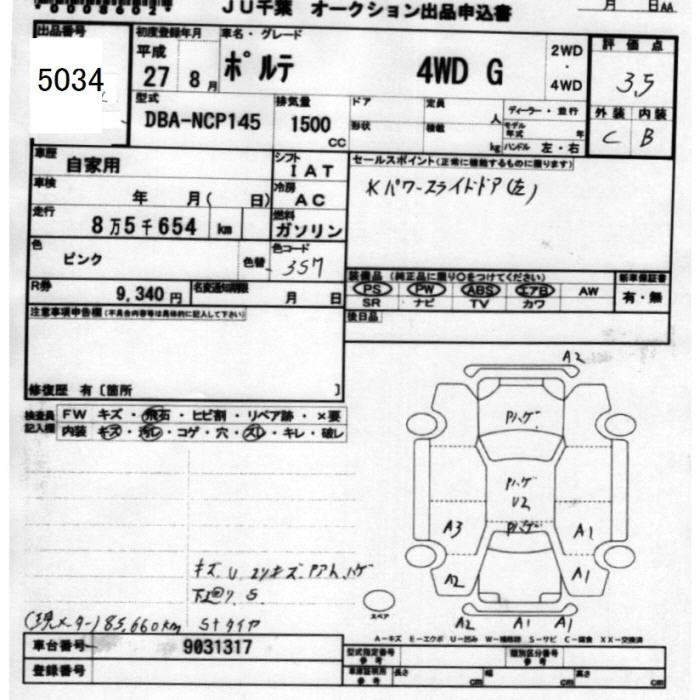 0008602
JU千葉 オークション出品申込書
月 日AA
出品番号 初度登録年月 車名・グレード 評価点
5034 平成 27 8月 ポルテ 4WD G 2WD・4WD 3.5
外装 内装
C B
型式 排気量 ドア 定員 人 ディーラー・並行
DBA-NCP145 1500 CC 形状 積載 kg モデル年式 年
ハンドル 左・右
車歴 自家用 シフト IAT セールスポイント(正常に機能するものに限ります)
車検 年 月( 日) 冷房 AC Kパワースライドドア(左)
走行 8万5千654 km 燃料 ガソリン
色 ピンク 色替 色コード 357
装備品(純正品に限り○をつけてください) 新車保証書
PS PW ABS エアB AW 有・無
SR ナビ TV カワ
R券 9,340円 名変通知期限 月 日
後日品
注意事項申告欄(不具合内容等は具体的に記入して下さい)
修復歴 有〔箇所 〕
検査員記入欄 FW キズ・飛石・ヒビ割・リペア跡・×要
内装 キズ・汚レ・コゲ・穴・スレ・キレ・破レ
A2
Pハゲ
Pハゲ
U2
Pハゲ
A3 A1
A2 A1
A2 A1 A1
スペア
キズ U
S
(現メーター)85,660km Sタイヤ
A－キズ E－エクボ U－凹み W－補修跡 S－サビ C－腐食 XX－交換済
車台番号 9031317 型式指定番号 参考 類別区分番号 参考
登録番号 車庫証明用 参考 長さ cm 幅 cm 高さ cm